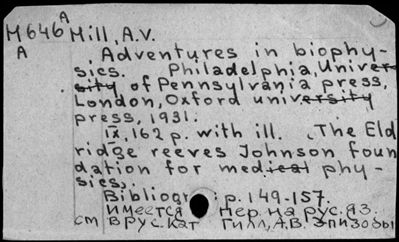 M646 A Mill, A.V.
A
Adventures in biophy-
sics. Philadelphia, Univer
sity of Pennsylvania press,
London, Oxford university
press, 1931.
IX, 162 p. with ill. (The Eld
ridge reeves Johnson foun
dation for medical phy-
sics).
Bibliogr : p. 149-157.
имеется пер. на рус. яз.
cm в рус. кат Гилл, А.В. Эпизоды